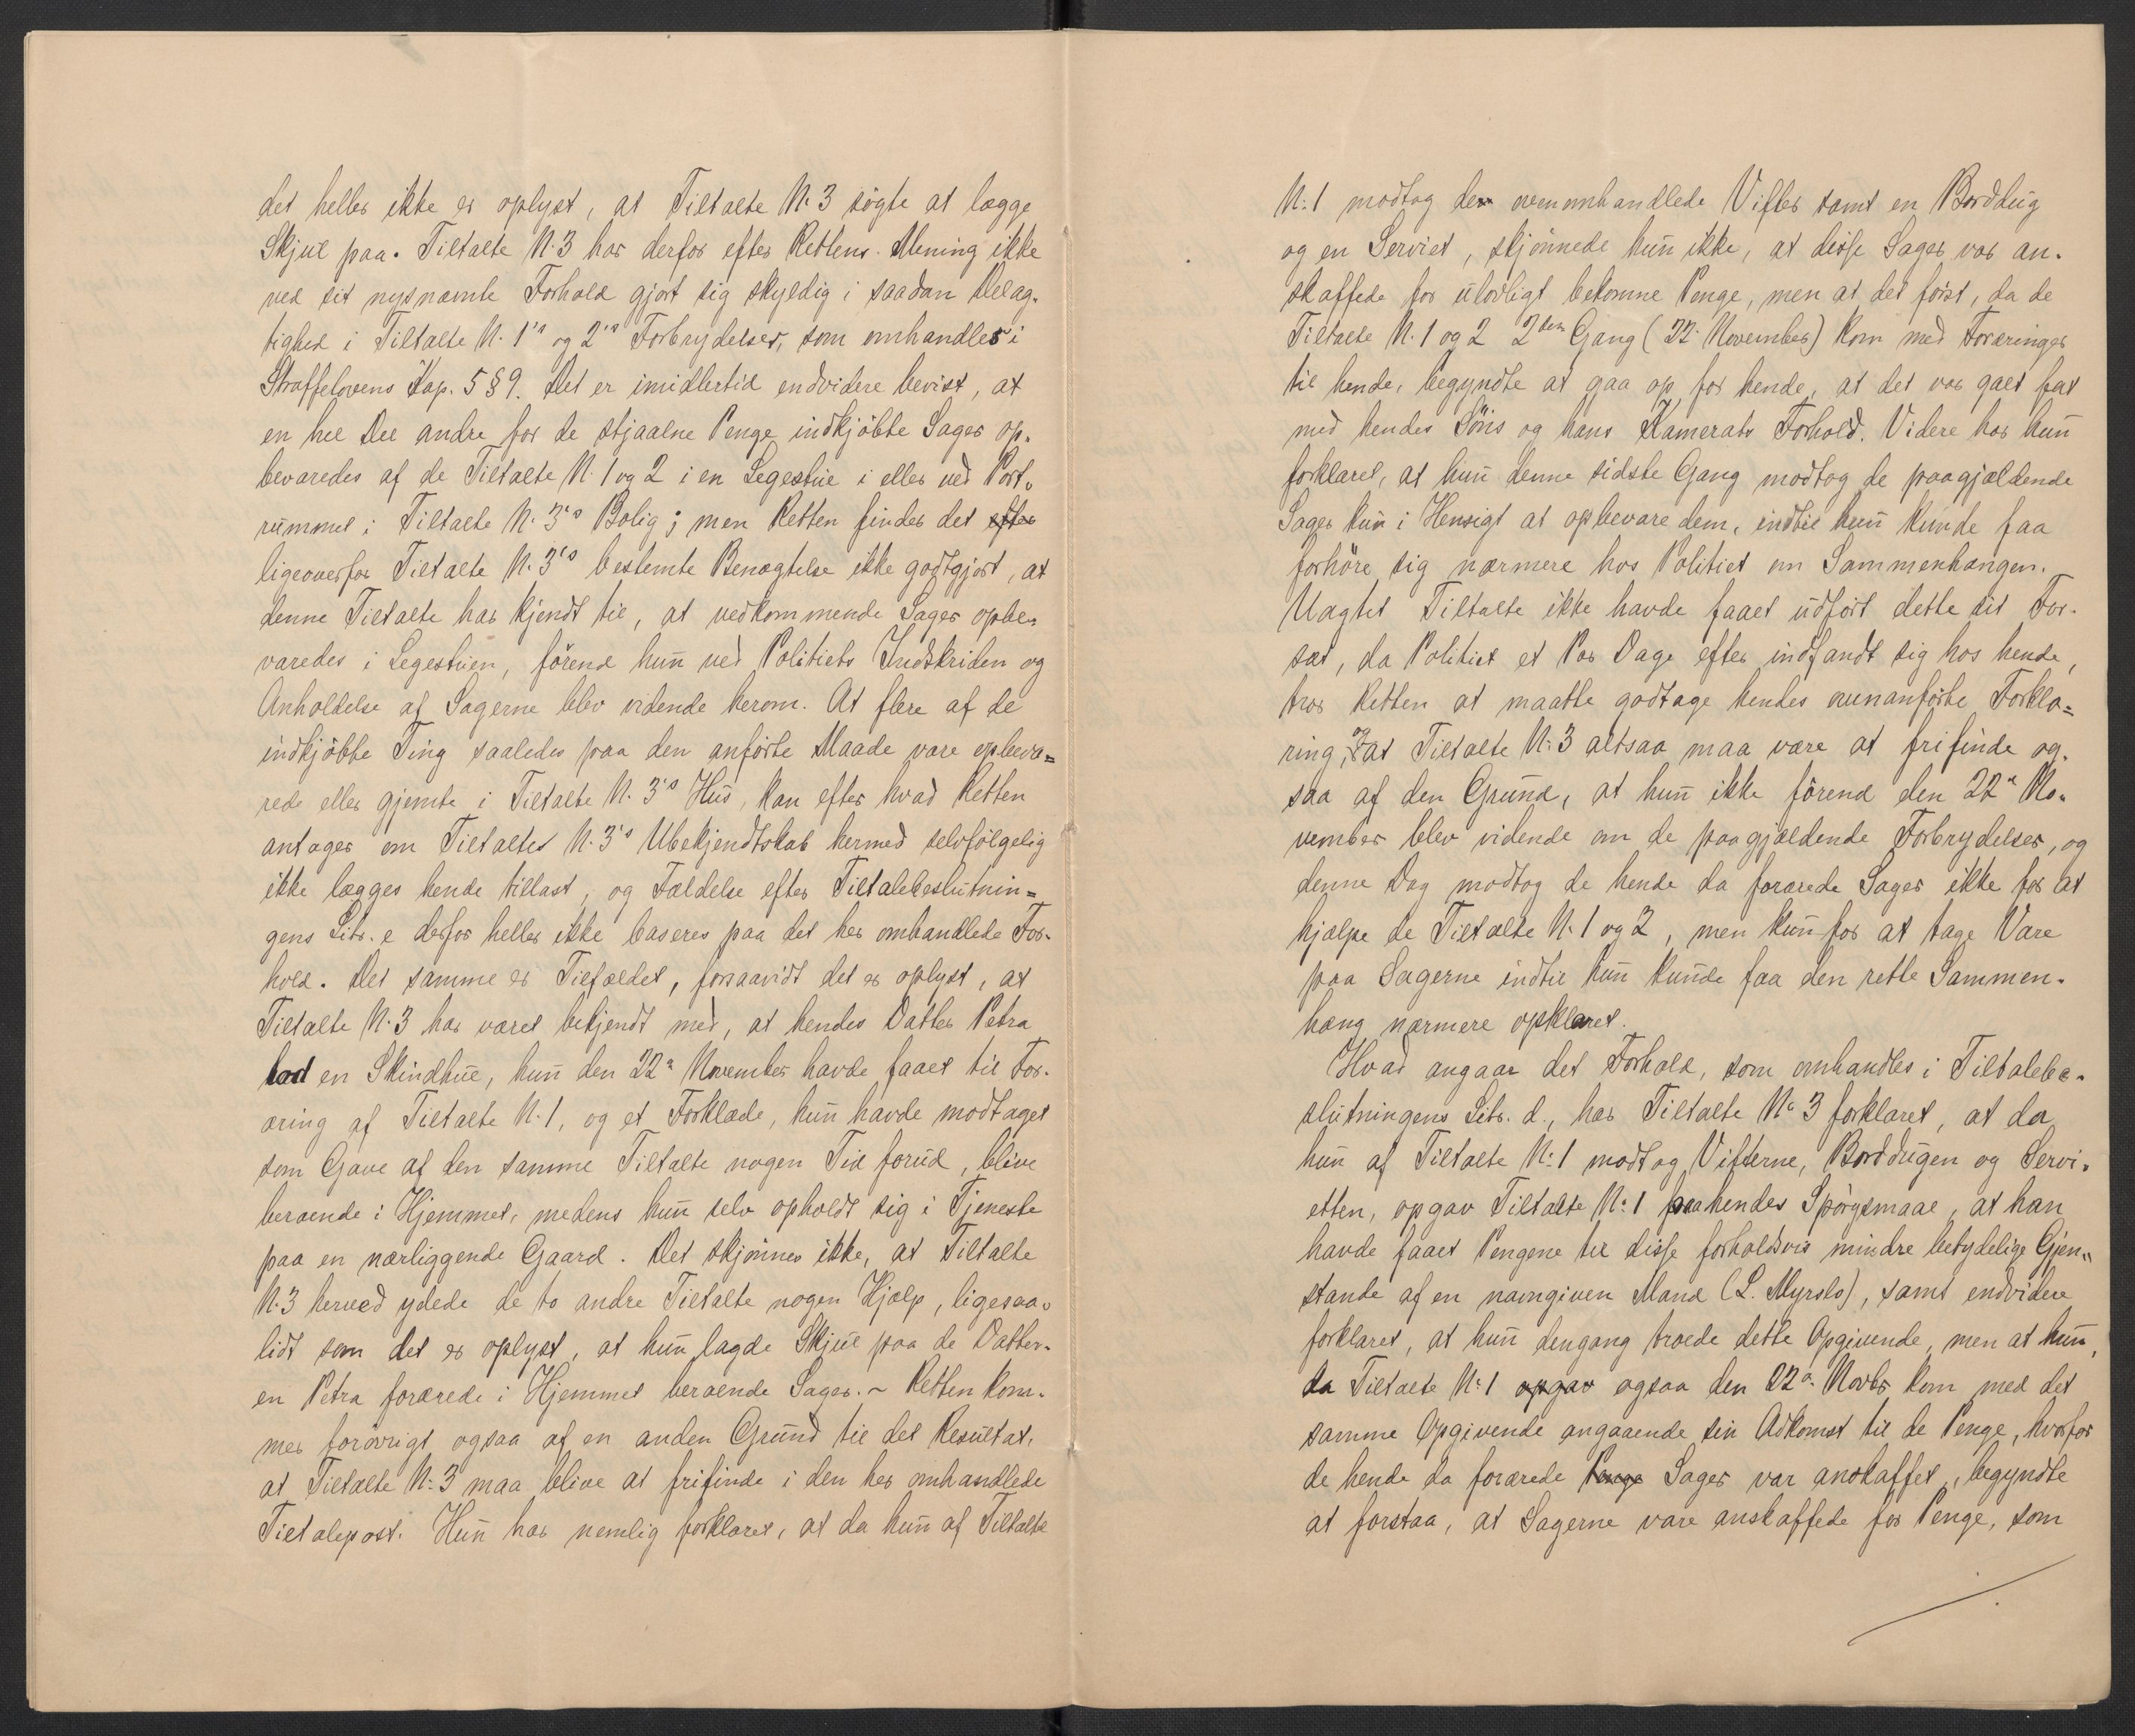 det heller ikke er oplyst, at Tiltalte N. 3 søgte at lægge
Skjul paa. Tiltalte N. 3 har derfor efter Rettens Mening ikke
ved sit nysnævnte Forhold gjort sig skyldig i saadan Delag-
tighed i Tiltalte N. 1's og 2's Forbrydelser, som omhandles i
Straffelovens Kap. 5 § 9. Det er imidlertid endvidere bevist, at
en hel Del andre for de stjaalne Penge indkjøbte Sager op-
bevaredes af de Tiltalte N. 1 og 2 i en Legestue i eller ved Port-
rummet i Tiltalte N. 3's Bolig; men Retten finder det efter
ligeoverfor Tiltalte N. 3's bestemte Benægtelse ikke godtgjort, at
denne Tiltalte har kjendt til, at vedkommende Sager opbe-
varedes i Legestuen, førend hun ved Politiets Indskriden og
Anholdelse af Sagerne blev vidende herom. At flere af de
indkjøbte Ting saaledes paa den anførte Maade vare opbeva=
rede eller gjemte i Tiltalte N. 3's Hus, kan efter hvad Retten
antager om Tiltaltes N. 3's Ubekjendtskab hermed selvfølgelig
ikke lægges hende tillast, og Fældelse efter Tiltalebeslutnin=
gens Litr. e derfor heller ikke baseres paa det her omhandlede For-
hold. Det samme er Tilfældet, forsaavidt det er oplyst, at
Tiltalte N. 3 har været bekjendt med, at hendes Datter Petra
lod en Skindhue, hun den 22de November havde faaet til For-
æring af Tiltalte N. 1, og et Forklæde, hun havde modtaget
som Gave af den samme Tiltalte nogen Tid forud, blive
beroende i Hjemmet, medens hun selv opholdt sig i Tjeneste
paa en nærliggende Gaard. Det skjønnes ikke, at Tiltalte
N. 3 herved ydede de to andre Tiltalte nogen Hjælp, ligesaa-
lidt som det er oplyst, at hun lagde Skjul paa de Datter-
en Petra forærede i Hjemmet beroende Sager. - Retten kom-
mer forøvrigt ogsaa af en anden Grund til det Resultat,
at Tiltalte N: 3 maa blive at frifinde i den her omhandlede
Tiltalepost. Hun har nemlig forklaret, at da hun af Tiltalte
N: 1 modtog den ovenomhandlede Vifter samt en Borddug
og en Serviet, skjønnede hun ikke, at disse Sager var an-
skaffede for ulovligt bekomne Penge, men at det først, da de
Tiltalte N. 1 og 2 2den Gang (22. November) kom med Foræringer
til hende, begyndte at gaa op for hende, at det var galt fat
med hendes Søns og hans Kamerats Forhold. Videre har hun
forklaret, at hun denne sidste Gang modtog de paagjældende
Sager kun i Hensigt at opbevare dem, indtil hun kunde faa
forhøre sig nærmere hos Politiet om Sammenhængen.
Uagtet Tiltalte ikke havde faaet udført dette sit For-
sæt, da Politiet et Par Dage efter indfandt sig hos hende,
tror Retten at maatte godtage hendes ovenanførte Forkla=
ring, og at Tiltalte N: 3 altsaa maa være at frifinde og-
saa af den Grund, at hun ikke førend den 22de No-
vember blev vidende om de paagjældende Forbrydelser, og
denne Dag modtog de hende da forærede Sager ikke for at
hjælpe de Tiltalte N. 1 og 2, men kun for at tage Vare
paa Sagerne indtil hun kunde faa den rette Sammen-
hæng nærmere opklaret.
Hvad angaar det Forhold, som omhandles i Tiltalebe-
slutningens Litr. d., har Tiltalte No 3 forklaret, at da
hun af Tiltalte N: 1 modtog Vifterne, Borddugen og Servi-
etten, opgav Tiltalte N: 1 paa hendes Spørgsmaal, at han
havde faaet Pengene til disse forholdsvis mindre betydelige Gjen-
stande af en navngiven Mand (L. Myrslo), samt endvidere
forklaret, at hun dengang troede dette Opgivende, men at hun,
da Tiltalte N: 1 opgav ogsaa den 22de Novbr kom med det
samme Opgivende angaaende sin Adkomst til de Penge, hvorfor
de hende da forærede Penge Sager var anskaffet, begyndte
at forstaa, at Sagerne vare anskaffede for Penge, som